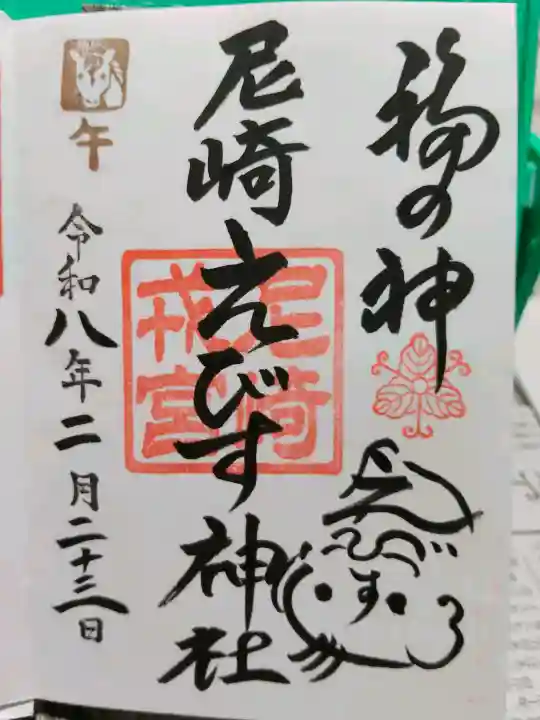 福の神
えびす
尼崎えびす神社
尼崎
戎宮
午
令和八年二月二十三日